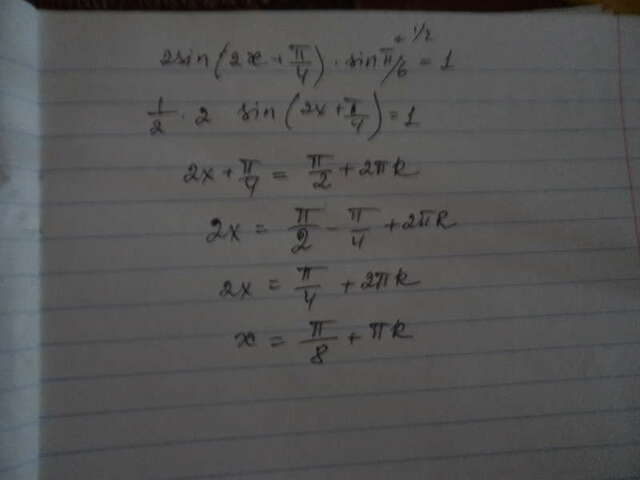 2sin(2x + π/4) · sin π/6 = 1 ← 1/2
1/2 · 2 sin(2x + π/4) = 1
2x + π/4 = π/2 + 2πk
2x = π/2 - π/4 + 2πk
2x = π/4 + 2πk
x = π/8 + πk